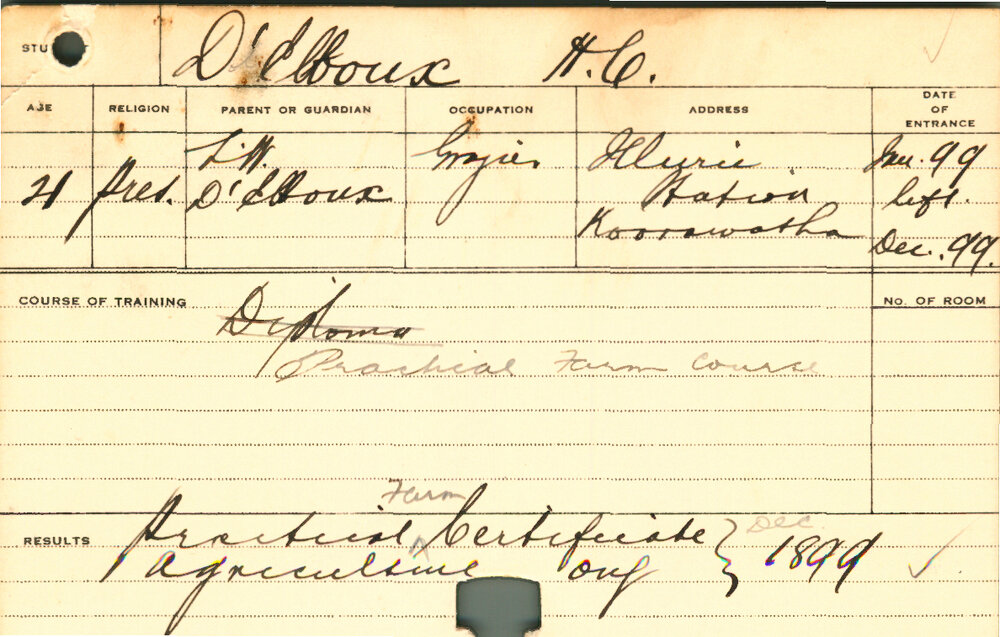 STU T D'Elboux H.C.
AGE RELIGION PARENT OR GUARDIAN OCCUPATION ADDRESS DATE OF ENTRANCE
21 Pres. L.W. D'Elboux Grazier Station Koorawatha Jan. 99 left. Dec. 99.
COURSE OF TRAINING Diploma No. OF ROOM
Practical Farm Course
Farm
RESULTS Practical ^ Certificate } Dec. 1899 ✓
Agriculture only